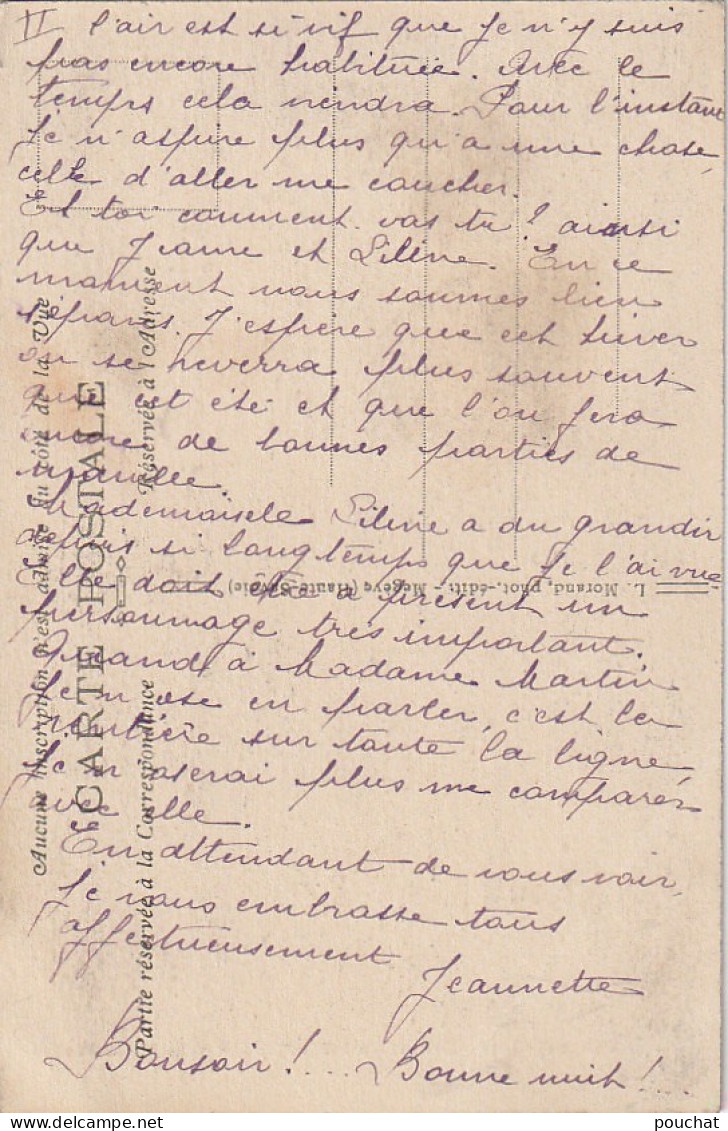 II l'air est si vif que je n'y suis
pas encore habituée. Avec le
temps cela viendra. Pour l'instant
je n'aspire plus qu'a une chose,
celle d'aller me coucher.
Et toi comment vas tu ? ainsi
que Jeanne et Liline. En ce
moment nous sommes bien
séparés. J'espère que cet hiver
on se reverra plus souvent
que cet été et que l'on fera
encore de bonnes parties de
manille.
Mademoiselle Liline a du grandir
depuis si longtemps que je l'ai vue
Elle doit être a présent un
personnage très important.
Quand à Madame Martin
Je n'ose en parler, c'est la
rentière sur toute la ligne,
Je n'oserai plus me comparer
avec elle.
En attendant de vous voir,
je vous embrasse tous
affectueusement
Jeannette
Bonsoir !... Bonne nuit !...
Aucune inscription n'est admise du côté de la Vue
CARTE POSTALE
Partie réservée à la Correspondance
Réservée à l'Adresse
L. Morand, phot.-édit. - Megève (Haute-Savoie)
pouchat